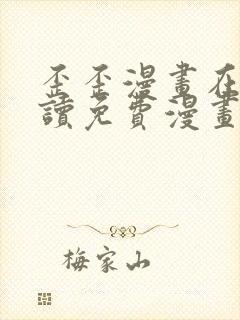 歪歪漫畫在
讀免費漫畫
梅家山